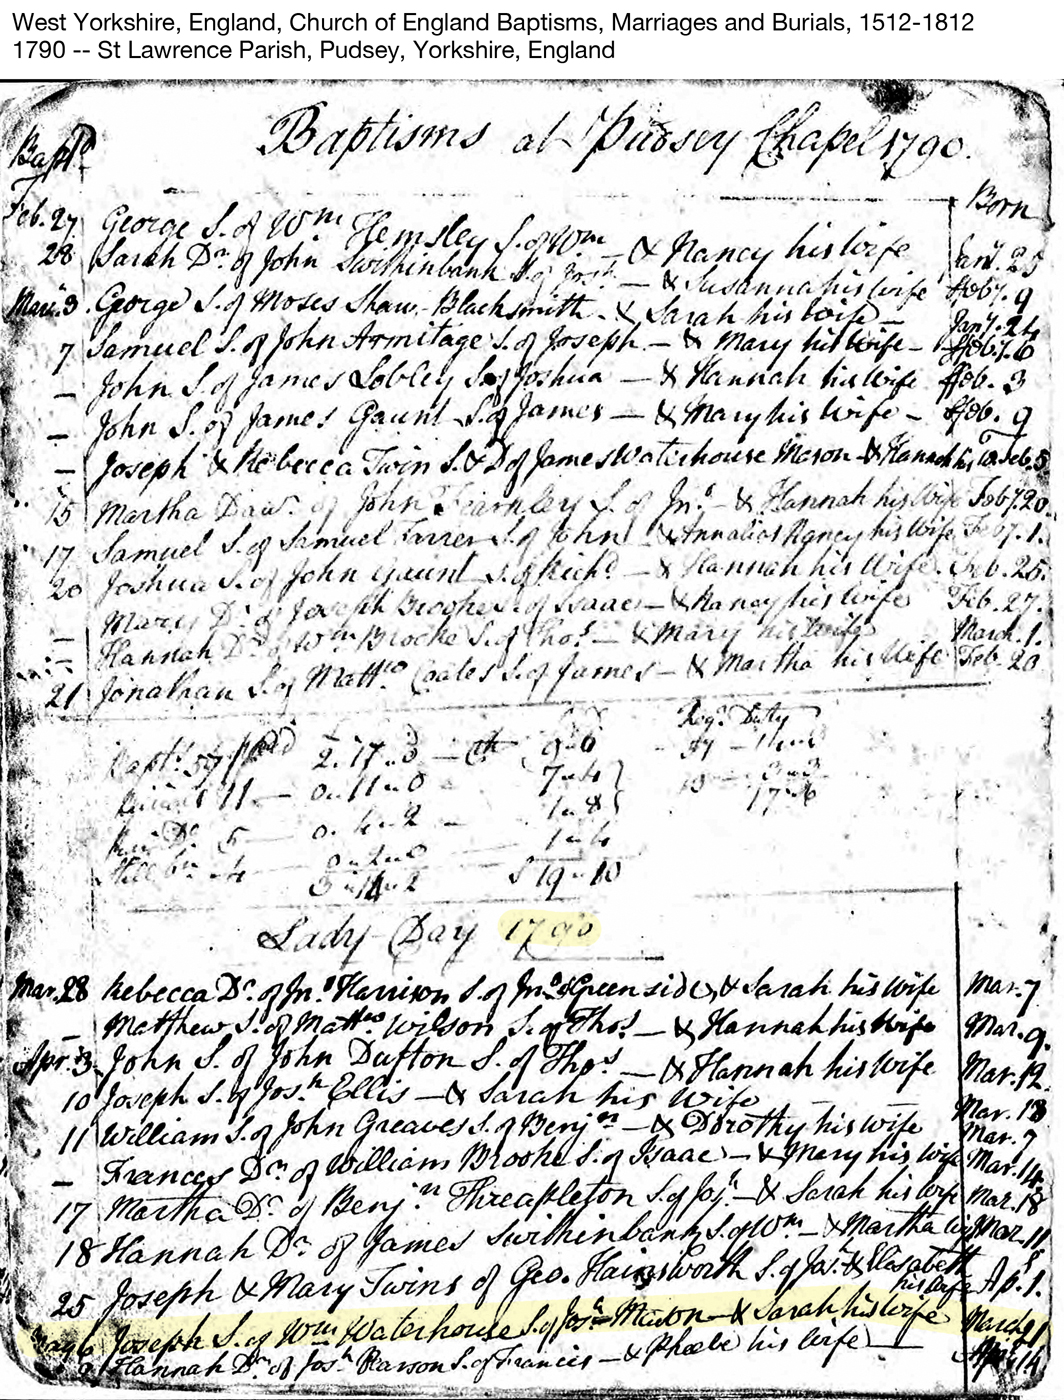 West Yorkshire, England, Church of England Baptisms, Marriages and Burials, 1512-1812
1790 -- St Lawrence Parish, Pudsey, Yorkshire, England
Baptisms at Pudsey Chapel 1790.
Bapt.d
Born
Feb. 27 George S. of Wm Hemsley S. of Wm & Nancy his Wife Jany. 25
28 Sarah Dr. of John Swithinbank S. of Josh. — & Susannah his wife Feby. 9
Mar. 3 George S. of Moses Shaw - Blacksmith - & Sarah his wife — Jany. 24
7 Samuel S. of John Armitage S. of Joseph — & Mary his wife — Feby. 6
— John S. of James Lobley S. of Joshua — & Hannah his wife Feb. 3
— John S. of James Gaunt S. of James — & Mary his Wife — Feb. 9
— Joseph & Rebecca Twin S. & D. of James Waterhouse Mason & Hannah his W. Feb. 5
15 Martha Daur. of John Fearnley S. of Jno. — & Hannah his Wife Feby. 20
17 Samuel S. of Samuel Farrer S. of John & Ann alias Nancy his Wife Feby. 1.
20 Joshua S. of John Gaunt S. of Richd. — & Hannah his Wife. Feb. 25.
— Mary D. of Joseph Brooke S. of Isaac — & Nancy his Wife Feb. 27.
— Hannah D. of Wm Brooke S. of Thos. — & Mary his wife March. 1.
21 Jonathan S. of Matt.w Coates S. of James — & Martha his Wife Feb. 20
Reg. Duty
Bapt. 57 2. 17. 3
11 — 0. 11. 0
5
4
Lady-Day 1790
Mar. 28 Rebecca Dr. of Jno. Harrison S. of Jno. Greenside, & Sarah his wife Mar. 7
— Matthew S. of Mattw. Wilson S. of Thos. — & Hannah his Wife Mar. 9.
Apr. 3 John S. of John Dufton S. of Thos. — & Hannah his Wife Mar. 12
10 Joseph S. of Josh. Ellis — & Sarah his Wife — — Mar. 13
11 William S. of John Greaves S. of Benjn. — & Dorothy his wife Mar. 7
— Frances Dr. of William Brooke S. of Isaac — & Mary his wife Mar. 14
17 Martha Dr. of Benjn. Threapleton S. of Josh. — & Sarah his wife Mar. 18
18 Hannah Dr. of James Swithinbank S. of Wm. — & Martha Mar. 11
25 Joseph & Mary Twins of Geo. Hainsworth S. of Jos. & Elisabeth his wife Ap. 1.
May 6 Joseph S. of Wm Waterhouse S. of Josh. Mason — & Sarah his Wife March 21
9 Hannah Dr. of Josh. Rawson S. of Francis — & Phoebe his wife — Apr. 14